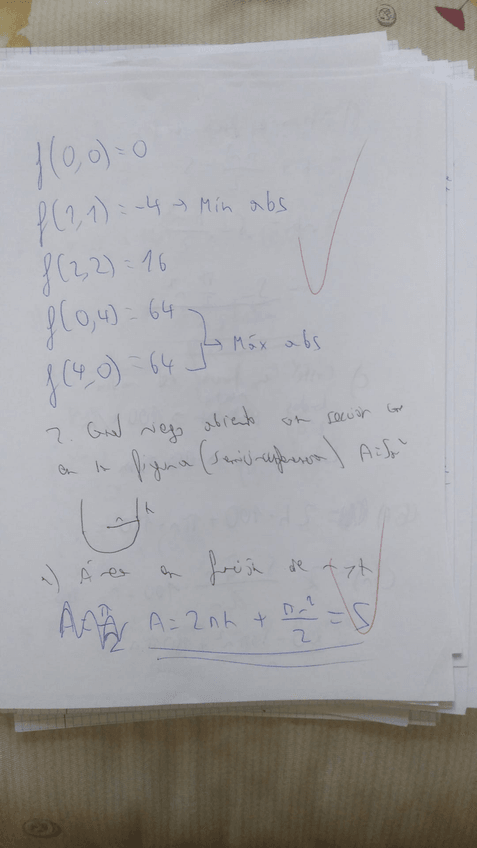 f(0,0)=0
f(1,1)=-4 → Mín abs
f(2,2)=16
f(0,4)=64
→ Máx abs
f(4,0)=64
2. Canal riego abierto con sección
en la figura (semicircunferencia) A=5m²
r h
1) Área en función de r y h
A = 2rh + πr²/2 = 5